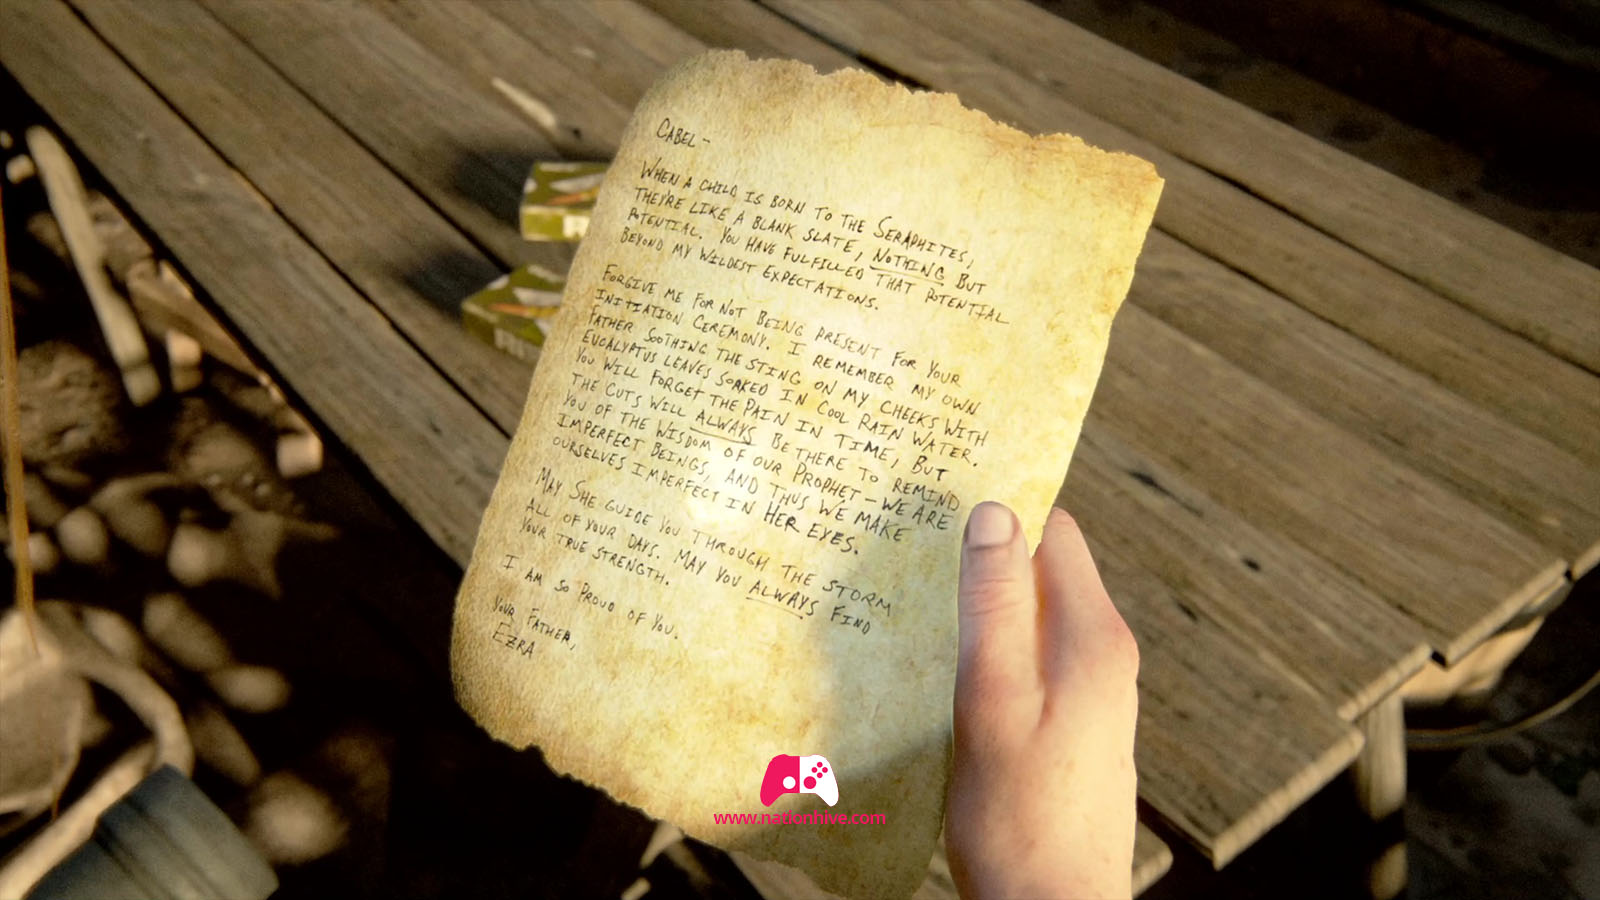 CABEL -
WHEN A CHILD IS BORN TO THE SERAPHITES,
THEY'RE LIKE A BLANK SLATE, NOTHING BUT
POTENTIAL. YOU HAVE FULFILLED THAT POTENTIAL
BEYOND MY WILDEST EXPECTATIONS.
FORGIVE ME FOR NOT BEING PRESENT FOR YOUR
INITIATION CEREMONY. I REMEMBER MY OWN
FATHER SOOTHING THE STING ON MY CHEEKS WITH
EUCALYPTUS LEAVES SOAKED IN COOL RAIN WATER.
YOU WILL FORGET THE PAIN IN TIME, BUT
THE CUTS WILL ALWAYS BE THERE TO REMIND
YOU OF THE WISDOM OF OUR PROPHET - WE ARE
IMPERFECT BEINGS, AND THUS WE MAKE
OURSELVES IMPERFECT IN HER EYES.
MAY SHE GUIDE YOU THROUGH THE STORM
ALL OF YOUR DAYS. MAY YOU ALWAYS FIND
YOUR TRUE STRENGTH.
I AM SO PROUD OF YOU.
YOUR FATHER,
EZRA
www.nationhive.com